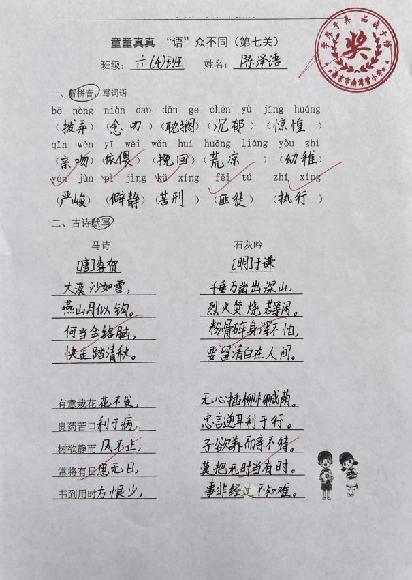 童童真真 “语”众不同（第七关）
班级：六(4)班 姓名：陈泽语
一、看拼音，写词语
bō nòng niàn dao dān ge chén yù jīng huáng
（拨弄）（念叨）（耽搁）（沉郁）（惊惶）
qīn wěn yī wēi wǎn huí huāng liáng yòu zhì
（亲吻）（依偎）（挽回）（荒凉）（幼稚）
yán jùn pì jìng kǔ xíng fěi tú zhí xíng
（严峻）（僻静）（苦刑）（匪徒）（执行）
二、古诗默写
马诗 石灰吟
[唐]李贺 [明]于谦
大漠沙如雪， 千锤万凿出深山，
燕山月似钩。 烈火焚烧若等闲。
何当金络脑， 粉骨碎身浑不怕，
快走踏清秋。 要留清白在人间。
有意栽花花不发， 无心插柳柳成荫。
良药苦口利于病， 忠言逆耳利于行。
树欲静而风不止， 子欲养而亲不待。
常将有日思无日， 莫把无时当有时。
书到用时方恨少， 事非经过不知难。
奖